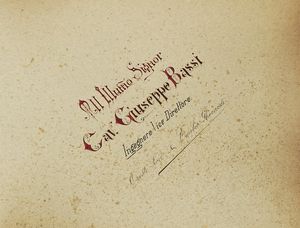 All'Illmo Signor
Cav. Giuseppe Bassi
Ingegnere Vice Direttore